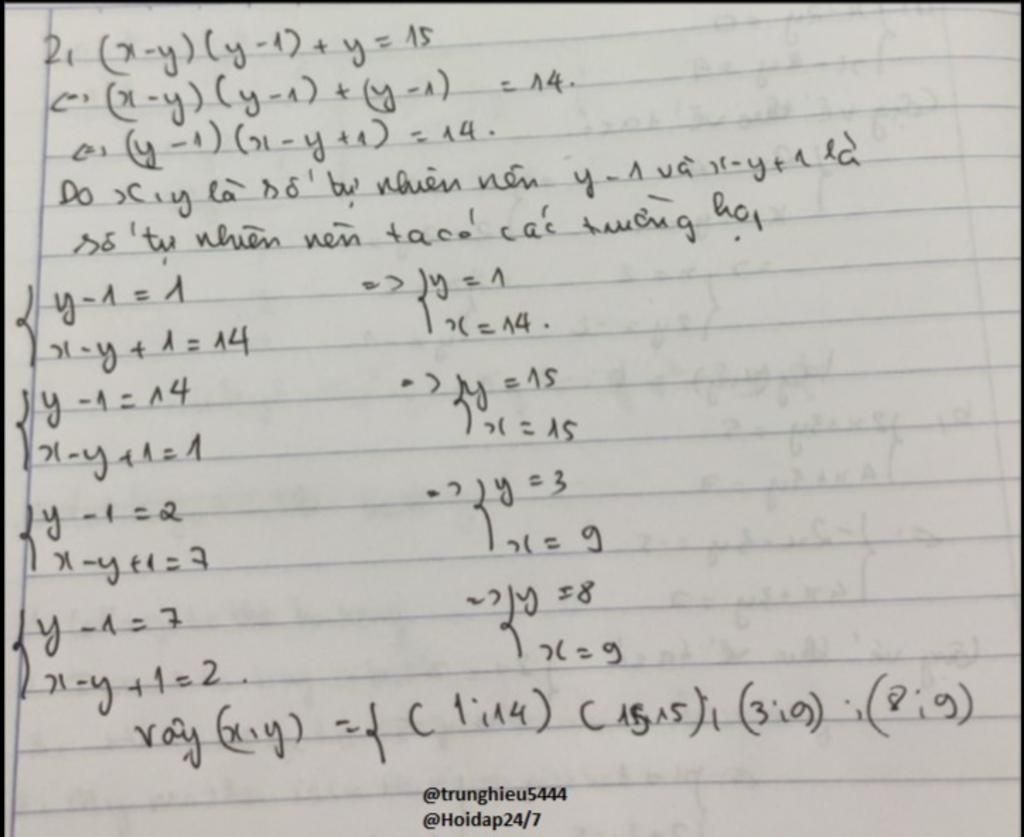 2, (x-y)(y-1)+y=15
<=> (x-y)(y-1)+(y-1) = 14.
<=> (y-1)(x-y+1) = 14.
Do x,y là số tự nhiên nên y-1 và x-y+1 là
số tự nhiên nên ta có các trường hợp
{ y-1=1 => { y=1
x-y+1=14 x=14.
{ y-1=14 => { y=15
x-y+1=1 x=15
{ y-1=2 => { y=3
x-y+1=7 x=9
{ y-1=7 => { y=8
x-y+1=2. x=9
vậy (x,y) = { (1;14) (15;15); (3;9) ; (8;9)
@trunghieu5444
@Hoidap24/7